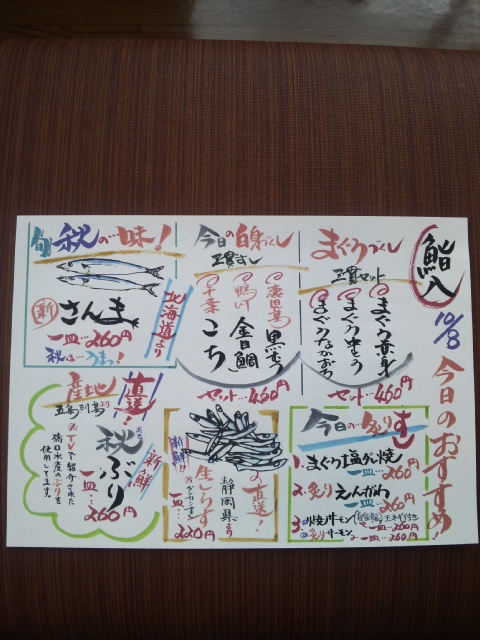 鮨人
10/8
今日のおすすめ!
まぐろづくし
三貫セット
まぐろ赤身
まぐろ中とろ
まぐろなかおち
セット…460円
今日の白身づくし
三貫すし
鹿児島
黒むつ
鴨川
金目鯛
千葉
こち
セット…460円
旬
秋の…味!
新
さんま
北海道より
一皿…260円
秋は…うまい!
今日の…炙りすし
1.まぐろ塩ダレ焼
一皿…260円
2.炙りえんがわ
一皿…260円
3.
サーモン
一皿…260円
炙りサーモン
一皿…260円
直送!
静岡県より
新鮮!!
生しらす
一皿…220円
産地
直送!
五島列島より
新鮮
秋ぶり
一皿…260円
※TVで紹介された
橋口水産のぶりを
使用してます。